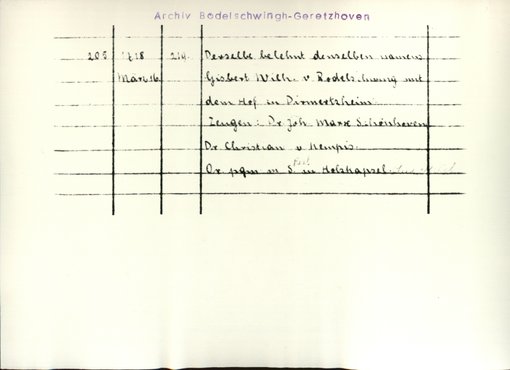 Archiv Bodelschwingh-Geretzhoven
205 1718 219. Derselbe belehnt denselben namens
März 16. Gisbert Wilh. v. Bodelschwing mit
dem Hof in Dirmertzheim
Zeugen: Dr. Joh. Marx Schönhoven
Dr. Christian v. Kempis.
Or. pgm m S. in Holzkapsel